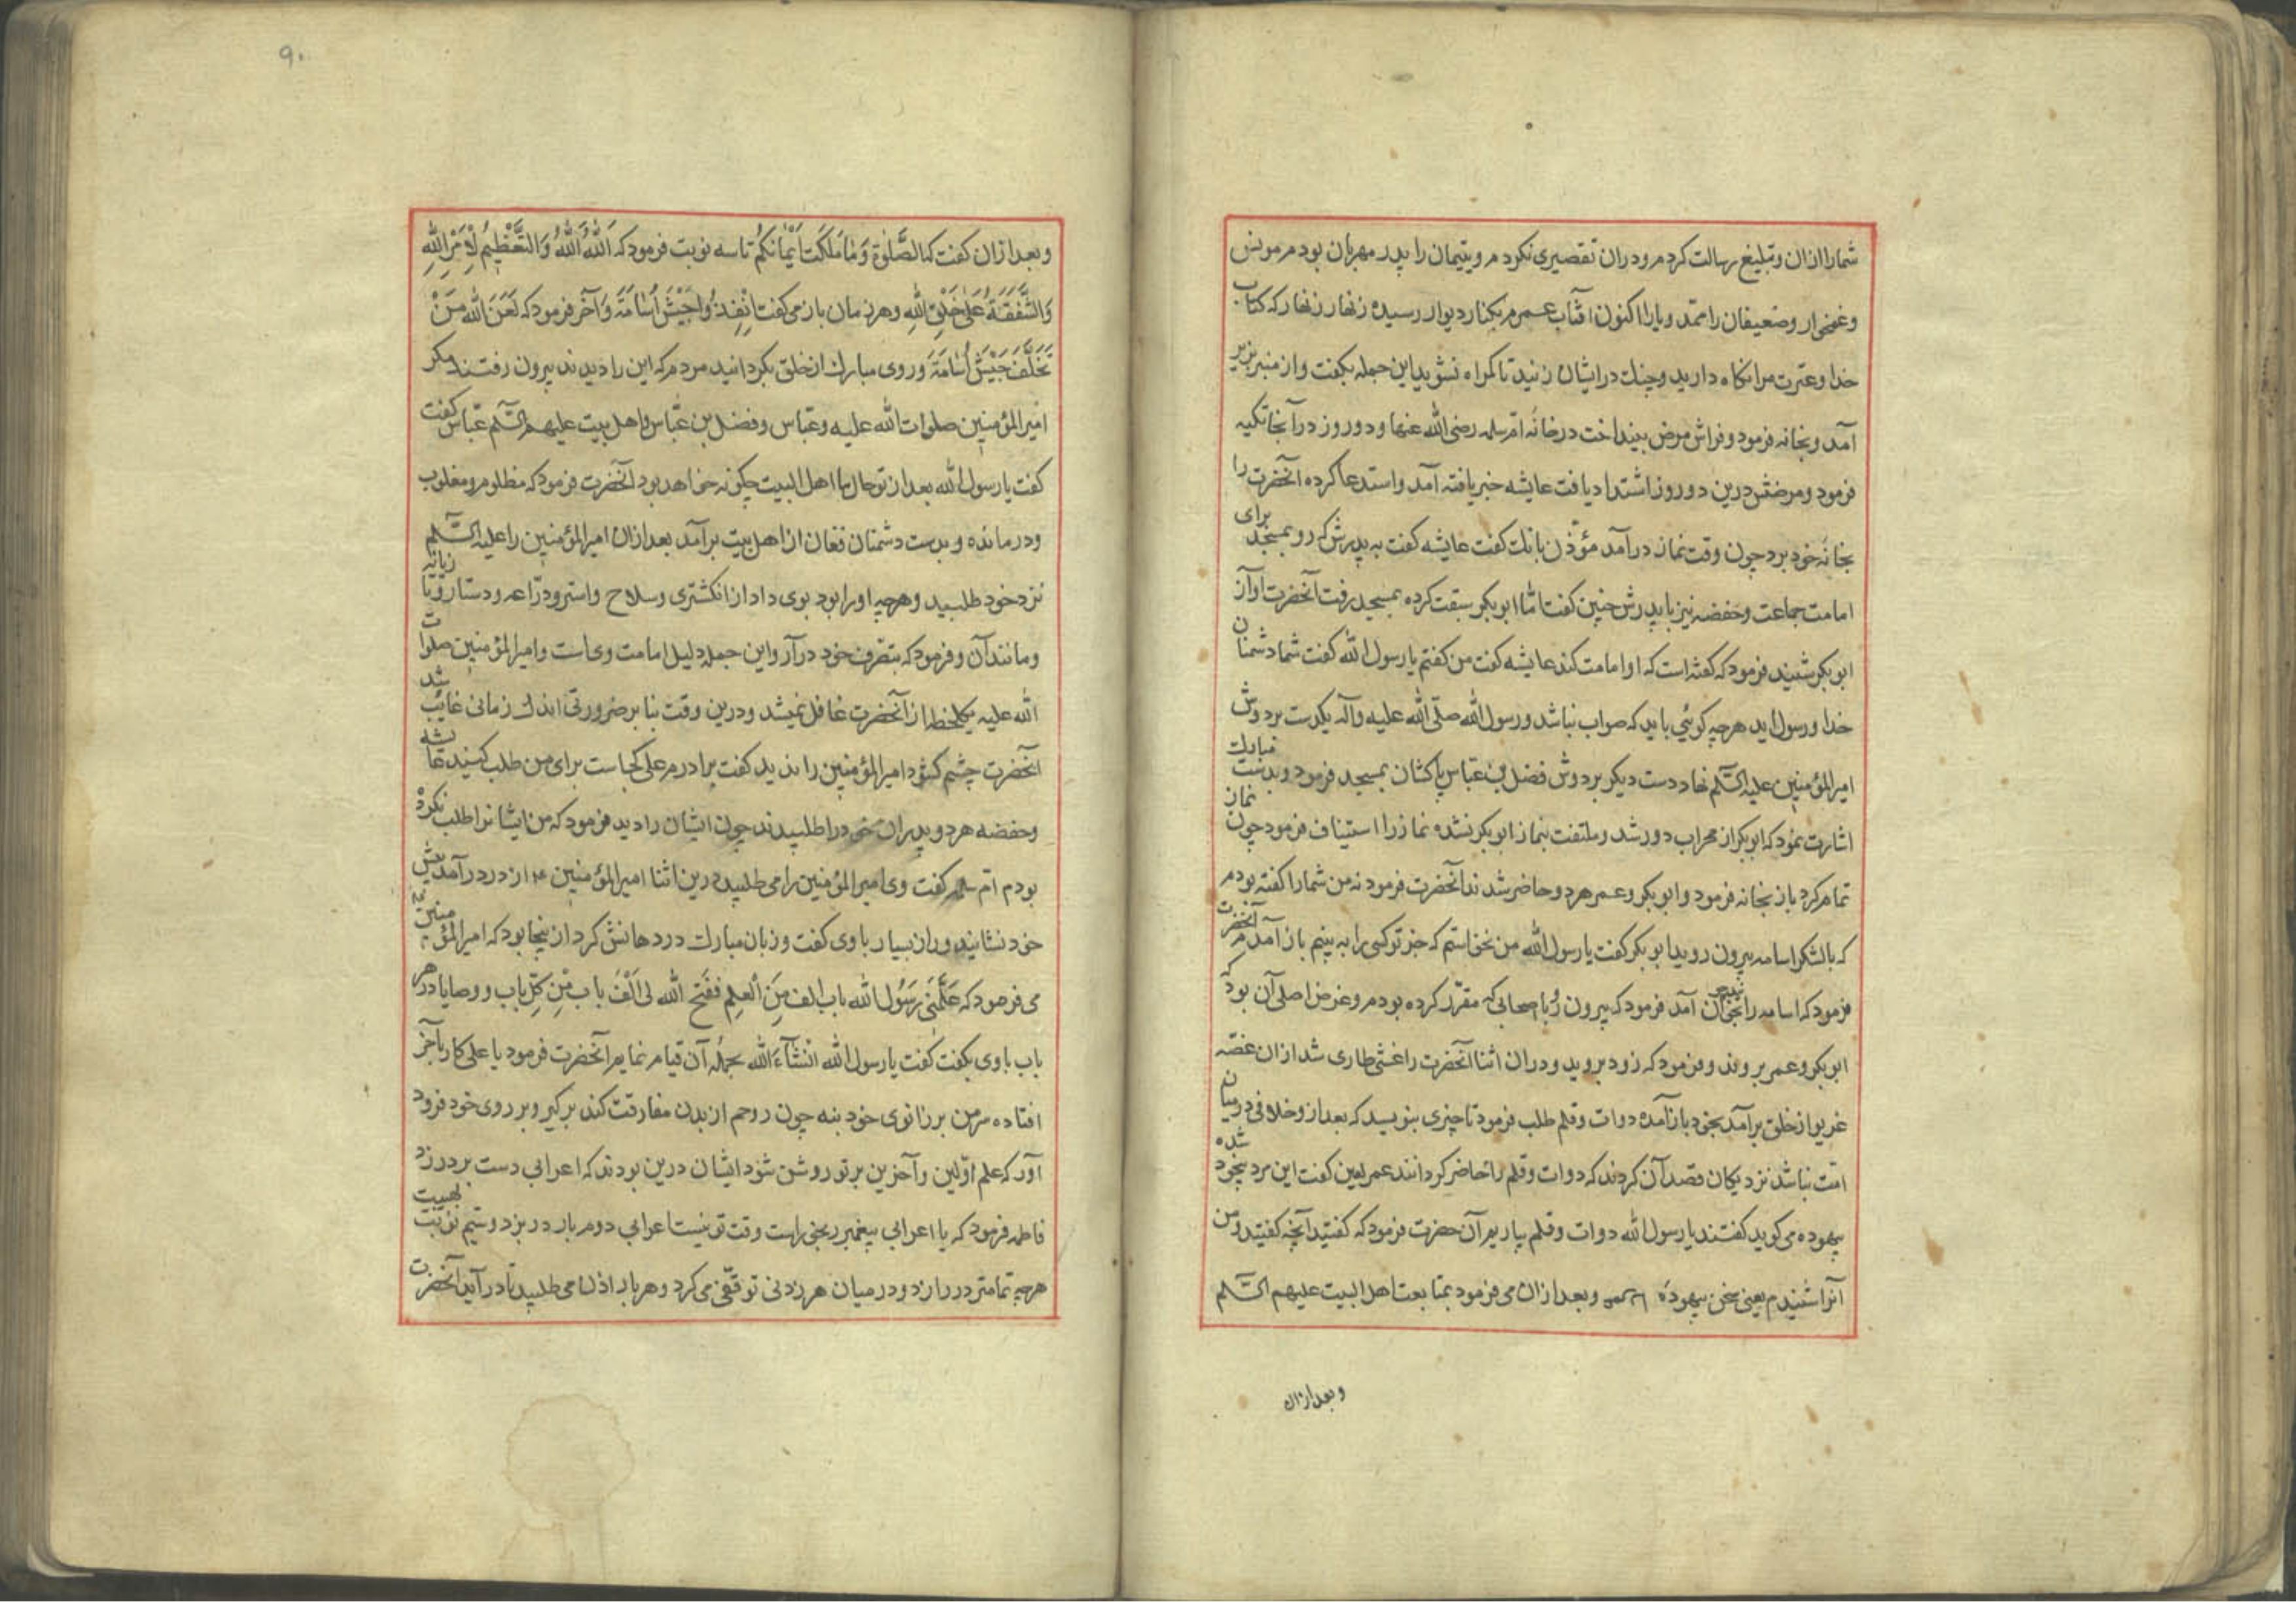 شمارا ازان وتبلیغ رسالت کردم ودران تقصیری نکردم ویتیمان را پدر مهربان بودم مونس
وغمخوار وضعیفان را ممد ویار اکنون افتاب عمرم بکنار دیوار رسیده زنهار زنهار که کتاب
خدا وعترت مرا نکاه دارید وچنك در ایشان زنید تا کمراه نشوید این جمله بکفت واز منبر بزیر
آمد وبخانه فرمود وفراش مرض بینداخت در خانه امّ سلمه رضی الله عنها ودو روز در آنجا تکیه
فرمود ومرضش درین دو روز اشتداد یافت عایشه خبر یافته آمد واستدعا کرده آنحضرت را
بخانه خود برد چون وقت نماز درآمد مؤذن بانك کفت عایشه کفت به پدرش که رو بمسجد برای
امامت جماعت وحفضه نیز با پدرش چنین کفت امّا ابوبکر سبقت کرده بمسجد رفت آنحضرت آواز
ابوبکر شنید فرمود که کفته است که او امامت کند عایشه کفت من کفتم یا رسول الله کفت شما دشمنان
خدا ورسول اید هرچه کوئی باید که صواب نباشد ورسول الله صلّی الله علیه وآله یکدست بر دوش
امیرالمؤمنین علیه السّلم نهاد دست دیکر بر دوش فضل بن عباس پاکشان بمسجد فرمود وبدست مبارك
اشارت نمود که ابوبکر از محراب دور شد وملتفت بنماز ابوبکر نشده نماز را استیناف فرمود چون نماز
تمام کرد باز بخانه فرمود وابوبکر وعمر هردو حاضر شدند آنحضرت فرمود نه من شمارا کفته بودم
که با لشکر اسامه بیرون روید ابوبکر کفت یا رسول الله من نخواستم که خبر تو کسی را به بینم باز آمدم آنحضرت
فرمود که اسامه را بخوان آمد فرمود که بیرون رو با صحابی که مقرّر کرده بودم وغرض اصلی آن بود که
ابوبکر وعمر بروند وفرمود که زود بروید ودران اثنا آنحضرت را غشی طاری شد ازان غصّه
غریو از خلق برآمد بخود باز آمده دوات وقلم طلب فرمود تا چیزی بنویسد که بعد ازو خلافی درمیان
امّت نباشد نزدیکان قصد آن کردند که دوات وقلم را حاضر کردانند عمر لعین کفت این مرد بیخود شده
بیهوده می کوید کفتند یا رسول الله دوات وقلم بیاریم آن حضرت فرمود که کفتید آنچه کفتید ومن
آنرا شنیدم یعنی سخن بیهوده وبعد ازان می فرمود بمتابعت اهل البیت علیهم السّلم
وبعد ازان
۹۰
وبعد ازان کفت که الصَّلٰوةَ وَمٰا مَلَکَت اَیْمٰانُکُم تا سه نوبت فرمود که اَللّٰهُ اَللّٰهُ وَالتَّعْظِیْمُ لِاَمْرِ اللّٰهِ
وَالشَّفَقَةُ عَلٰی خَلْقِ اللّٰهِ وهر زمان باز می کفت اَنْفِذُوا جَیْشَ اُسٰامَةَ وآخر فرمود که لَعَنَ اللّٰه مَنْ
تَخَلَّفَ جَیْشَ اُسٰامَةَ وروی مبارك از خلق بکردانید مردم که این را دیدند بیرون رفتند مکر
امیر المؤمنین صلوات الله علیه وعبّاس وفضل بن عبّاس واهل بیت علیهم السّلم عبّاس کفت
کفت یا رسول الله بعد از تو حال ما اهل البیت چکونه خواهد بود آنحضرت فرمود که مظلوم ومغلوب
ودرمانده وبدست دشمنان فغان از اهل بیت برآمد بعد ازان امیر المؤمنین را علیه السّلم
نزد خود طلبید وهرچه اورا بود بوی داد از انکشتری وسلاح واستر ودرّاعه ودستار
ومانند آن وفرمود که بتصرف خود درآر واین جمله دلیل امامت وی است وامیر المؤمنین صلوات
الله علیه یکلحظه از آنحضرت غافل نمیشد ودرین وقت بنا بر ضرورتی اندك زمانی غایب شد
آنحضرت چشم کشود امیر المؤمنین را ندید کفت برادرم علی کجاست برای من طلب کنید عایشه
وحفضه هردو پدران خود را طلبیدند چون ایشان را دید فرمود که من ایشانرا طلب نکرده
بودم امّ سلمه کفت وی امیر المؤمنین را می طلبید درین اثنا امیر المؤمنین ع از در درآمد پیش
خود نشانید وراز بسیار باوی کفت وزبان مبارك در دهانش کرد ازینجا بود که امیر المؤمنین
می فرمود که عَلَّمَنی رَسُول الله باب الف مِنَ الْعِلمِ فَفَتح الله لی اَلْف باب مِّنْ کلِّ باب ووصایا در هر
باب باوی بکفت کفت یا رسول الله انْشٰآءَ الله بجمله آن قیام نمایم آنحضرت فرمود یا علی کار بآخر
افتاده سر من بر زانوی خود بنه چون روحم از بدن مفارقت کند بر کیر وبر روی خود فرود
آور که علم اوّلین وآخرین بر تو روشن شود ایشان درین بودند که اعرابی دست بر در زد
فاطمه فرمود که یا اعرابی پیغمبر رنجورست وقت تو نیست اعرابی دوم بار در بزد وسّیم نوبت بهیبت
هرچه تمامتر در را زد ودر میان هر زدنی توقّفی می کرد وهر بار اذن می طلبید تا درآید آنحضرت